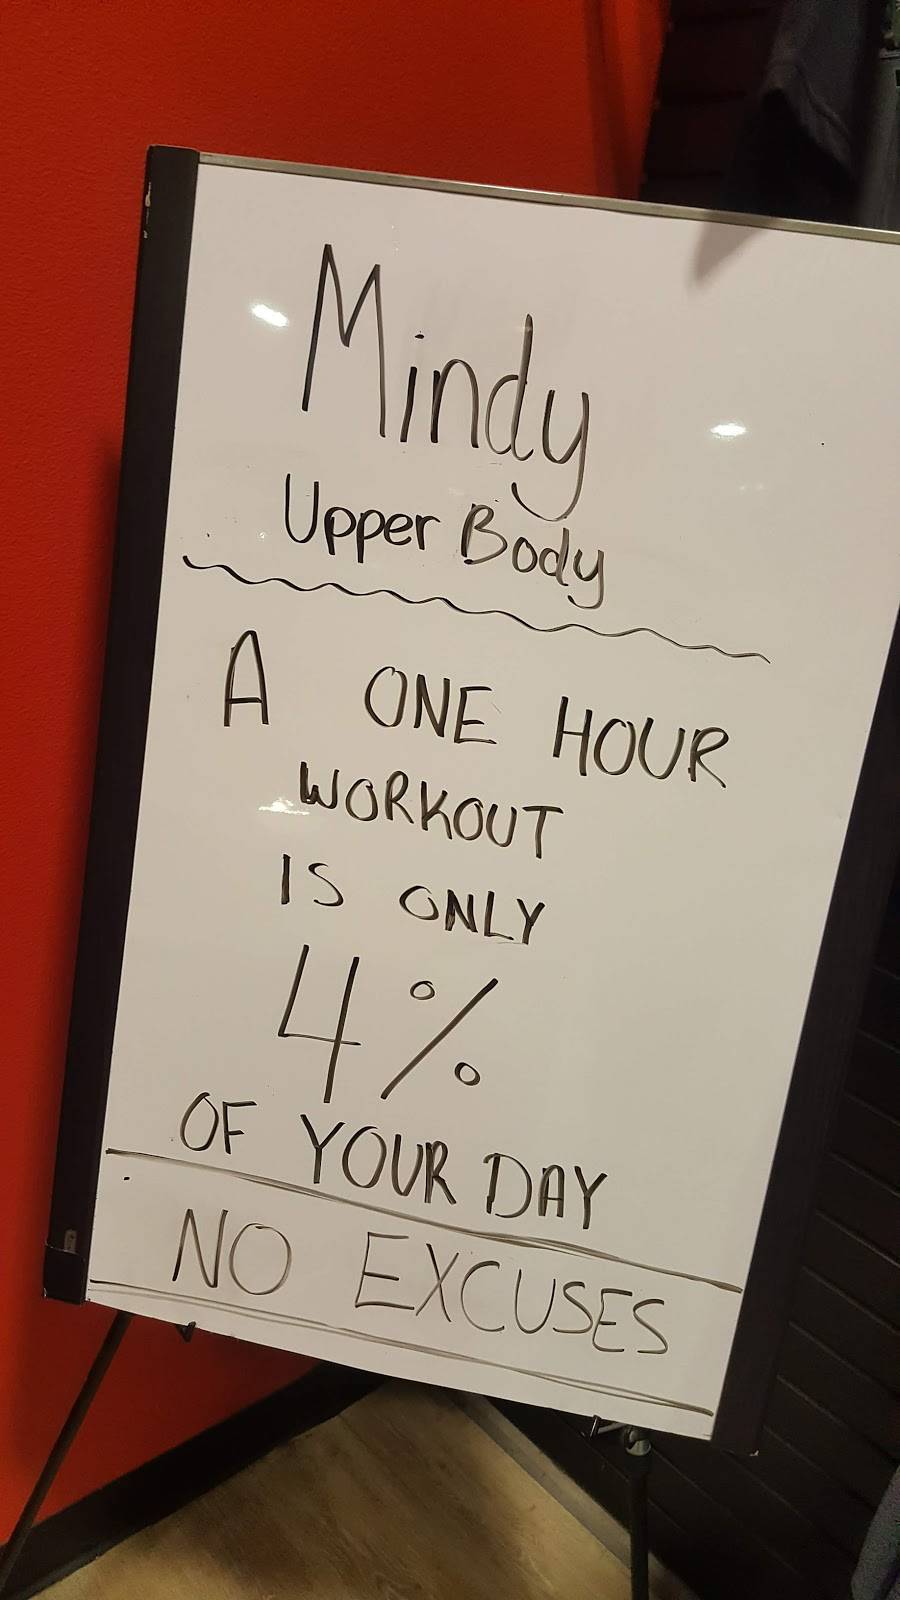 Mindy
Upper Body
A ONE HOUR
WORKOUT
IS ONLY
4%
OF YOUR DAY
NO EXCUSES